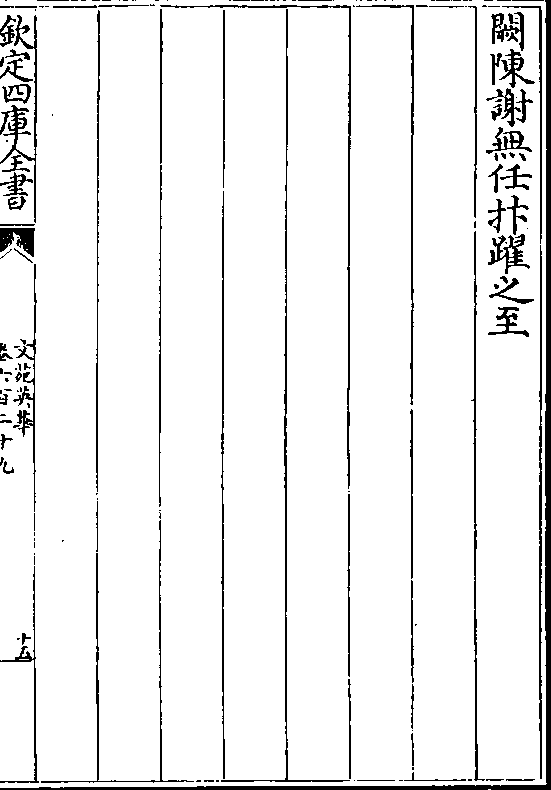 闕陳謝無任抃躍之至
欽定四庫全書
文苑英華
卷六百二十九
十五